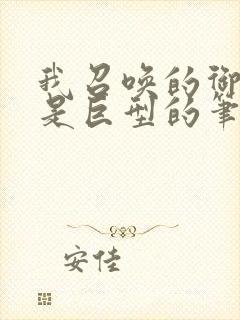 我召唤的御
是巨型的筆
安佳